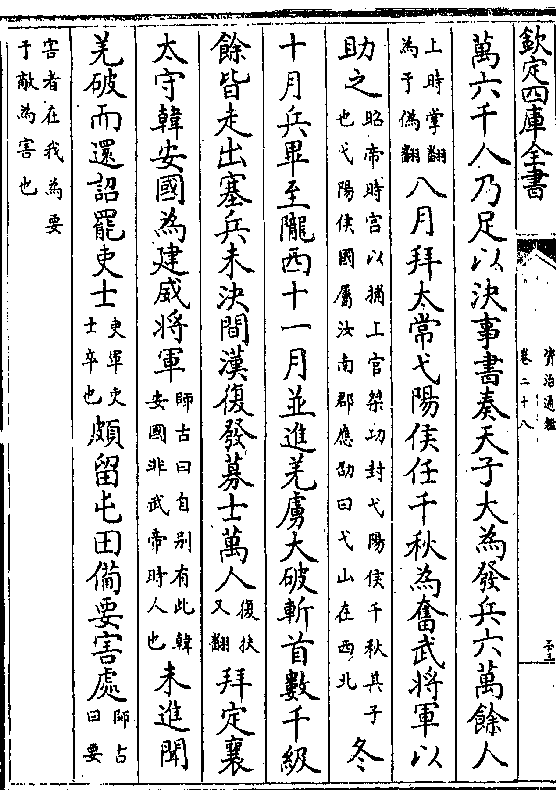 欽定四庫全書
資治通鑑
卷二十八
萬六千人乃足以決事書奏天子大為發兵六萬餘人
上時掌翻
為于偽翻
八月拜太常弋陽侯任千秋為奮武將軍以
助之
昭帝時宫以捕上官桀功封弋陽侯千秋其子
也弋陽侯國屬汝南郡應劭曰弋山在西北
冬
十月兵畢至隴西十一月並進羌虜大破斬首數千級
餘皆走出塞兵未決間漢復發募士萬人
復扶
又翻
拜定襄
太守韓安國為建威將軍
師古曰自别有此韓
安國非武帝時人也
未進聞
羌破而還詔罷吏士
吏軍吏
士卒也
頗留屯田備要害處
師古
曰要
害者在我為要
于敵為害也